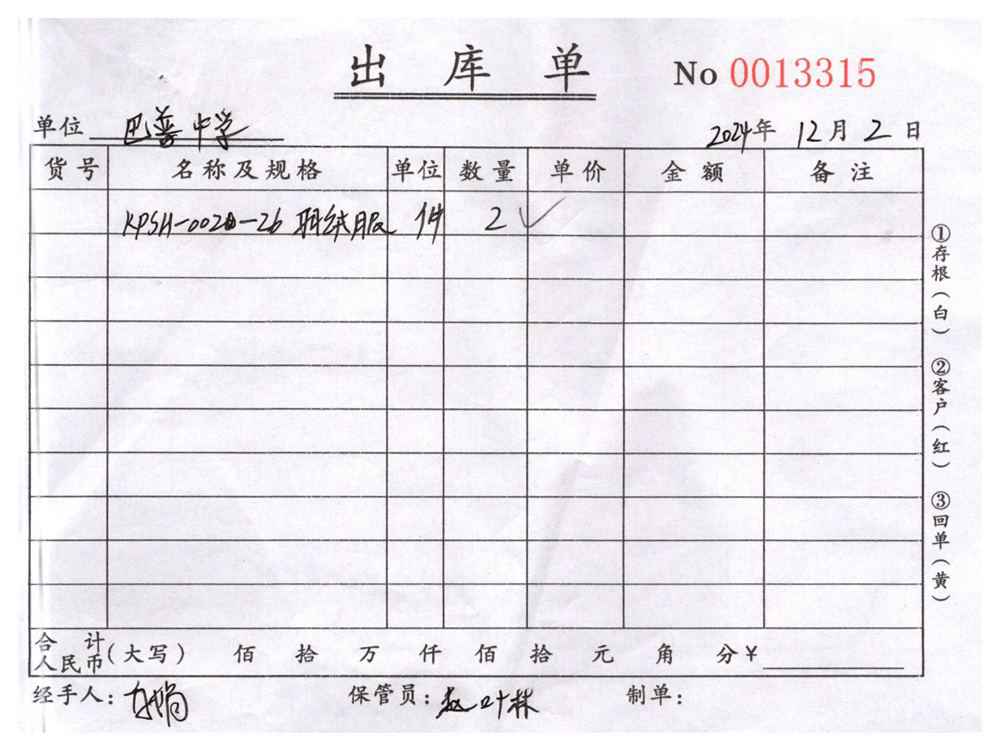 出库单 No 0013315
单位 巴蓉中学 2024年 12月 2日
货号 名称及规格 单位 数量 单价 金额 备注
KPSH-0020-26 羽绒服 件 2 ✓
合计人民币(大写) 佰 拾 万 仟 佰 拾 元 角 分¥
经手人: 保管员:赵叶林 制单:
①存根(白) ②客户(红) ③回单(黄)